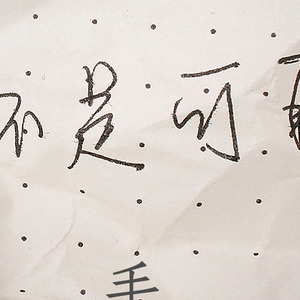 不是可
手